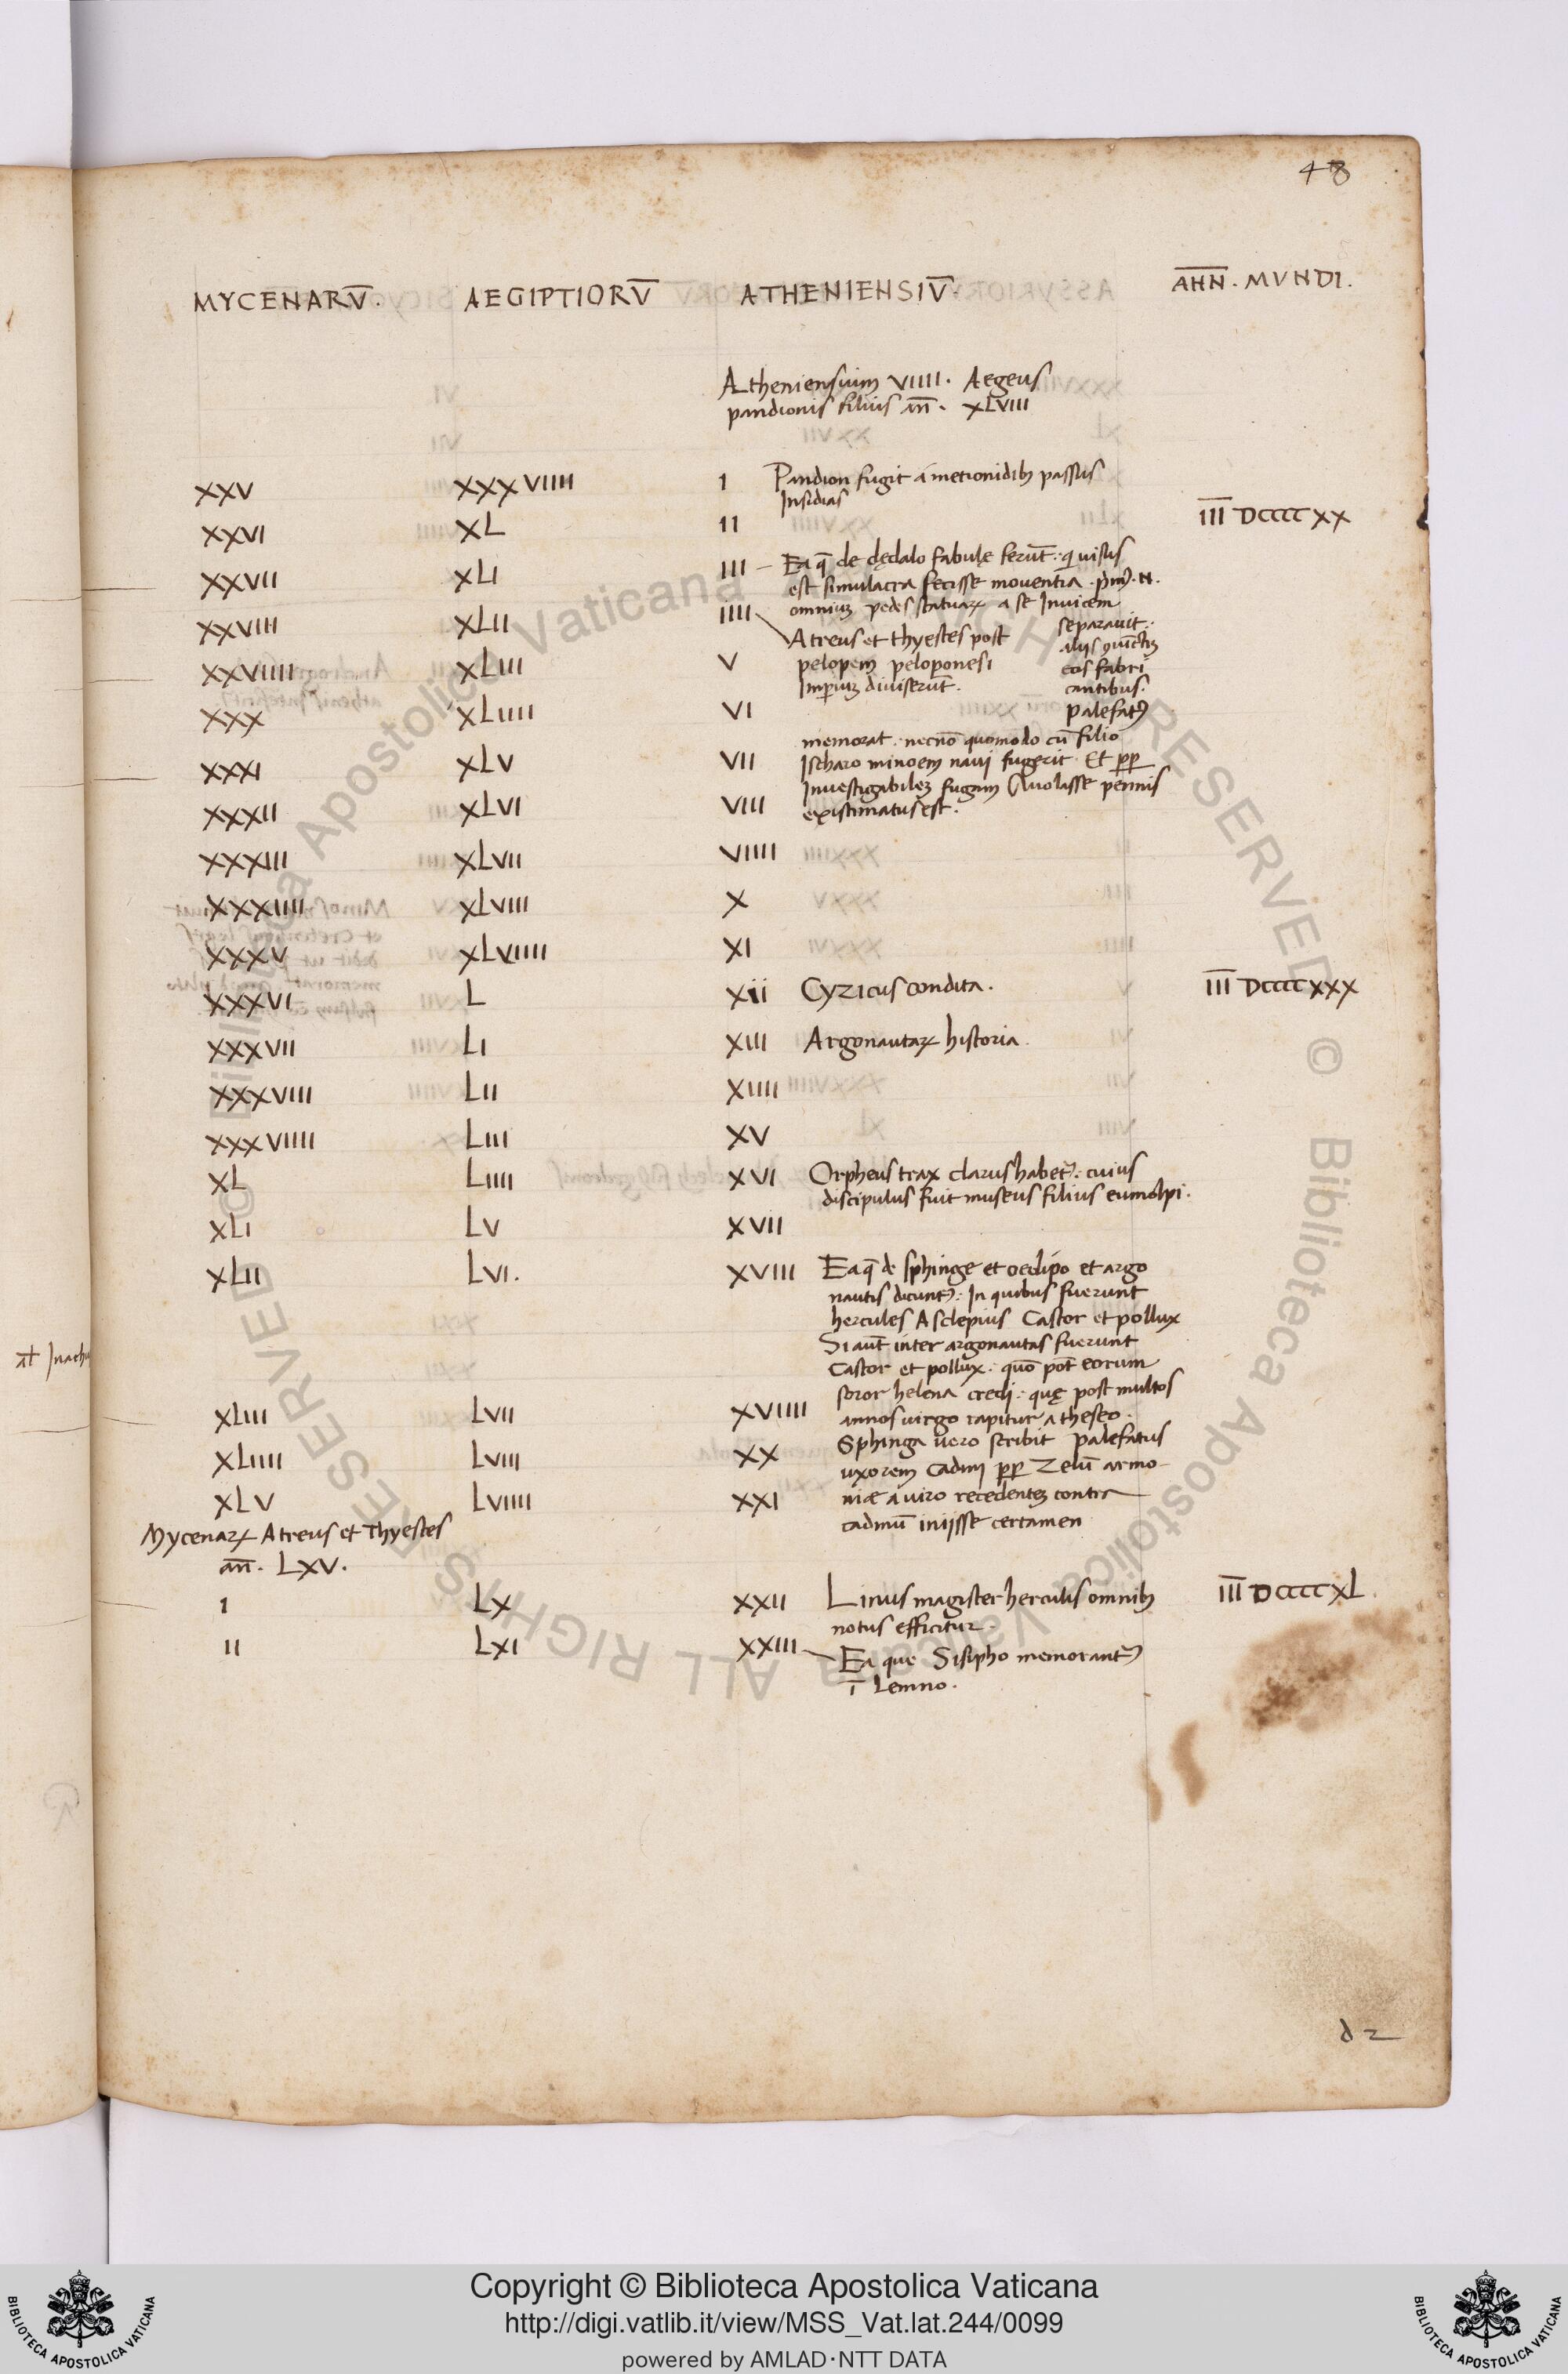 48
MYCENARV̅. AEGIPTIORV̅ ATHENIENSIV̅. AN̅N̅. MVNDI.
Atheniensium VIIII. Aegeus
pandionis filius an̅. XLVIII
XXV XXXVIIII I Pandion fugit a metionidibꝫ passus
Insidias
XXVI XL II I̅I̅I̅ DCCCCXX
XXVII XLI III Ea q̅ de dędalo fabulę ferūt: qui uisus
est simulacra fecisse mouentia. pͥmꝰ. N.
omniuꝫ pedes statuaꝝ a se Inuicem
separauit:
XXVIII XLII IIII Atreus et thyestes post
alijs ꝯiūctis
XXVIIII XLIII V pelopem peloponesi
eos fabri
Imperiuꝫ diuiserūt.
cantibus.
XXX XLIIII VI palefatꝰ
memorat. necnō quomodo cū filio
XXXI XLV VII Icharo minoem naui fugerit Et ꝓꝑ
Inuestigabileꝫ fugam Auolasse pennis
XXXII XLVI VIII existimatus est.
XXXIII XLVII VIIII
XXXIIII XLVIII X
XXXV XLVIIII XI
XXXVI L XII Cyzicus condita. I̅I̅I̅ DCCCCXXX
XXXVII LI XIII Argonautaꝝ historia.
XXXVIII LII XIIII
XXXVIIII LIII XV
XL LIIII XVI Orpheus trax clarus habetꝰ: cuius
discipulus fuit museus filius eumolpi.
XLI LV XVII
XLII LVI. XVIII Ea q̅ de sphinge et oedipo et argo
nautis dicuntꝰ: In quibus fuerunt
hercules Asclepius Castor et pollux
Si aut̅ inter argonautas fuerunt
at Inachu
Castor et pollux. quō pōt eorum
soror helena credi: quę post multos
XLIII LVII XVIIII annos uirgo rapitur a theseo.
Sphinga uero scribit palefatus
XLIIII LVIII XX uxorem Cadmi ꝓꝑ Zelū armo
XLV LVIIII XXI niæ a uiro recedenteꝫ contra
cadmū inijsse certamen
Mycenaꝝ Atreus et Thyestes
an̅. LXV.
I LX XXII Linus magister herculis omnibꝫ I̅I̅I̅ DCCCCXL
notus efficitur.
II LXI XXIII Ea que Sisipho memorantꝰ
ī Lemno.
d 2
© Biblioteca Apostolica Vaticana ALL RIGHTS RESERVED
Copyright © Biblioteca Apostolica Vaticana
http://digi.vatlib.it/view/MSS_Vat.lat.244/0099
powered by AMLAD·NTT DATA
BIBLIOTECA APOSTOLICA VATICANA
BIBLIOTECA APOSTOLICA VATICANA